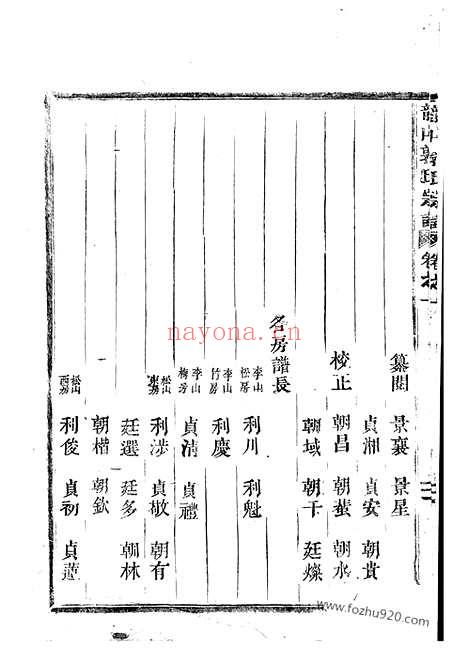 韶山郭氏宗譜
纂閱 景襄 景星
貞湘 貞安 朝貴
校正 朝昌 朝螢 朝水
朝域 朝干 廷燦
名房譜長
李山松房 利川 利魁
李山竹房 利慶
李山梅房 貞清 貞禮
松山東房 利涉 貞敬 朝有
廷選 廷多 朝林
朝楷 朝欽
松山西房 利俊 貞初 貞蓮
nayona.cn
www.fozhu920.com